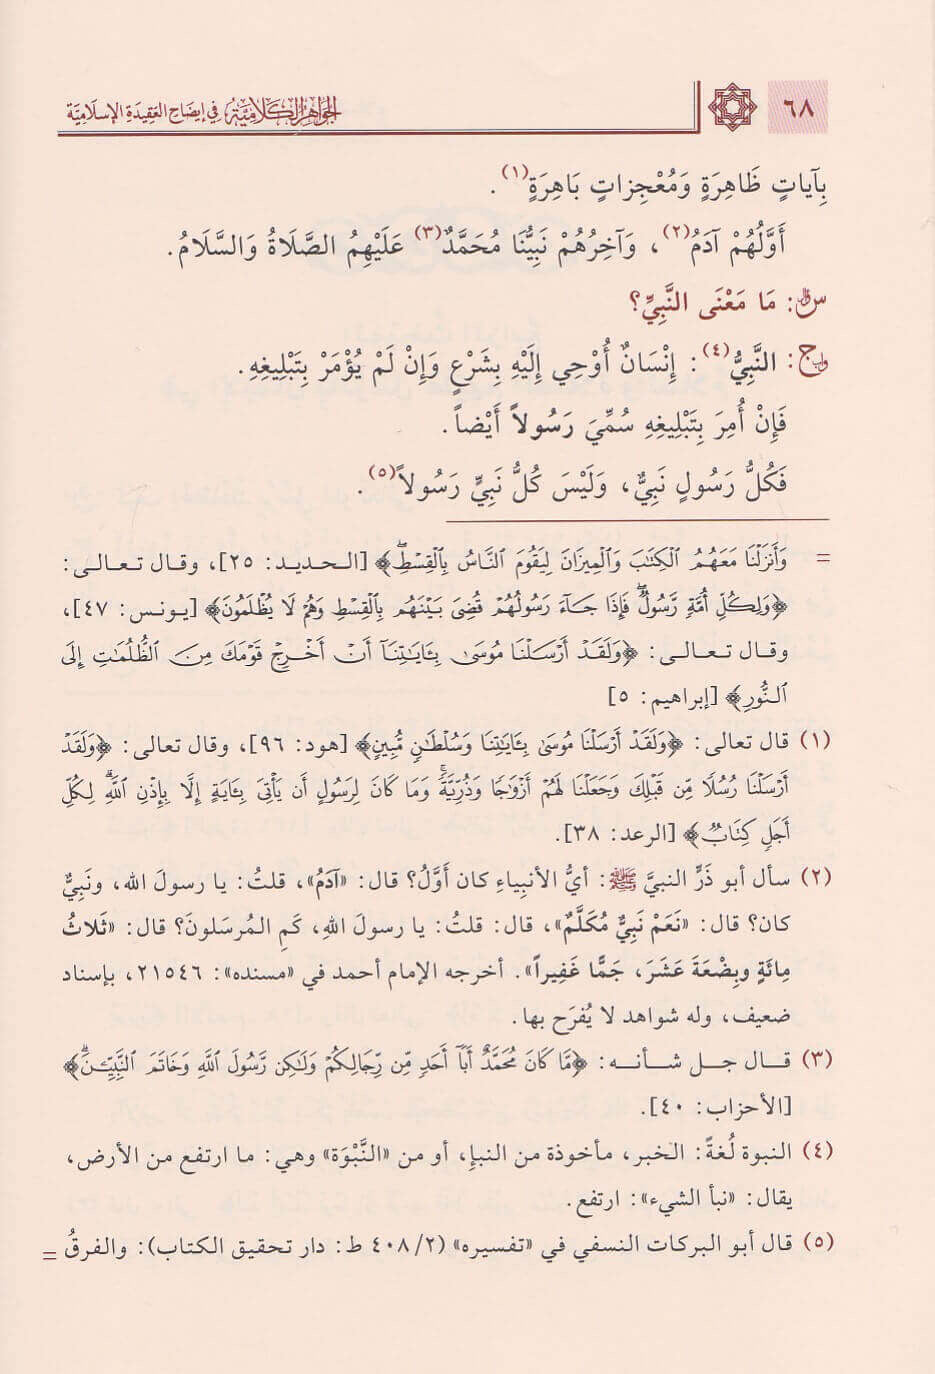 ٦٨ الجواهر الكلامية في إيضاح العقيدة الإسلامية
بِآيَاتٍ ظَاهِرَةٍ وَمُعْجِزَاتٍ بَاهِرَةٍ(١).
أَوَّلُهُمْ آدَمُ(٢)، وَآخِرُهُمْ نَبِيُّنَا مُحَمَّدٌ(٣) عَلَيْهِمُ الصَّلَاةُ وَالسَّلَامُ.
سؤال: مَا مَعْنَى النَّبِيِّ؟
جواب: النَّبِيُّ(٤): إِنْسَانٌ أُوْحِي إِلَيْهِ بِشَرْعٍ وَإِنْ لَمْ يُؤْمَرْ بِتَبْلِيغِهِ.
فَإِنْ أُمِرَ بِتَبْلِيغِهِ سُمِّيَ رَسُولاً أَيْضاً.
فَكُلُّ رَسُولٍ نَبِيٌّ، وَلَيْسَ كُلُّ نَبِيٍّ رَسُولاً(٥).
= وَأَنزَلْنَا مَعَهُمُ الْكِتَٰبَ وَالْمِيزَانَ لِيَقُومَ النَّاسُ بِالْقِسْطِۖ﴾ [الحديد: ٢٥]، وقال تعالى:
﴿وَلِكُلِّ أُمَّةٍ رَّسُولٌۖ فَإِذَا جَآءَ رَسُولُهُمْ قُضِىَ بَيْنَهُم بِالْقِسْطِ وَهُمْ لَا يُظْلَمُونَ﴾ [يونس: ٤٧]،
وقال تعالى: ﴿وَلَقَدْ أَرْسَلْنَا مُوسَىٰ بِـَٔايَٰتِنَآ أَنْ أَخْرِجْ قَوْمَكَ مِنَ الظُّلُمَٰتِ إِلَى
النُّورِ﴾ [إبراهيم: ٥]
(١) قال تعالى: ﴿وَلَقَدْ أَرْسَلْنَا مُوسَىٰ بِـَٔايَٰتِنَا وَسُلْطَٰنٍ مُّبِينٍ﴾ [هود: ٩٦]، وقال تعالى: ﴿وَلَقَدْ
أَرْسَلْنَا رُسُلًا مِّن قَبْلِكَ وَجَعَلْنَا لَهُمْ أَزْوَٰجًا وَذُرِّيَّةًۚ وَمَا كَانَ لِرَسُولٍ أَن يَأْتِىَ بِـَٔايَةٍ إِلَّا بِإِذْنِ اللَّهِۗ لِكُلِّ
أَجَلٍ كِتَابٌ﴾ [الرعد: ٣٨].
(٢) سأل أبو ذَرٍّ النبيَّ ﷺ: أيُّ الأنبياءِ كان أوَّلُ؟ قال: «آدَمُ»، قلتُ: يا رسولَ الله، ونَبِيٌّ
كان؟ قال: «نَعَمْ نَبِيٌّ مُكَلَّمٌ»، قال: قلتُ: يا رسولَ اللهِ، كَمِ المُرسَلونَ؟ قال: «ثَلاثُ
مِائَةٍ وبِضْعَةَ عَشَرَ، جَمًّا غَفِيراً». أخرجه الإمام أحمد في «مسنده»: ٢١٥٤٦، بإسناد
ضعيف، وله شواهد لا يُفرَح بها.
(٣) قال جل شأنه: ﴿مَّا كَانَ مُحَمَّدٌ أَبَآ أَحَدٍ مِّن رِّجَالِكُمْ وَلَٰكِن رَّسُولَ اللَّهِ وَخَاتَمَ النَّبِيِّـۧنَۗ﴾
[الأحزاب: ٤٠].
(٤) النبوة لُغةً: الخبر، مأخوذة من النبإِ، أو من «النَّبْوَة» وهي: ما ارتفع من الأرض،
يقال: «نبأ الشيء»: ارتفع.
(٥) قال أبو البركات النسفي في «تفسيره» (٤٠٨/٢ ط: دار تحقيق الكتاب): والفرقُ =